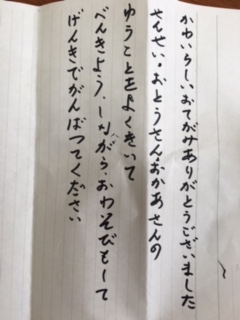 かわいらしいおてがみありがとうございました
せんせい・おとうさん・おかあさんの
ゆうことをよくきいて
べんきよう、しながら、おわそびもして
げんきでがんばつてください